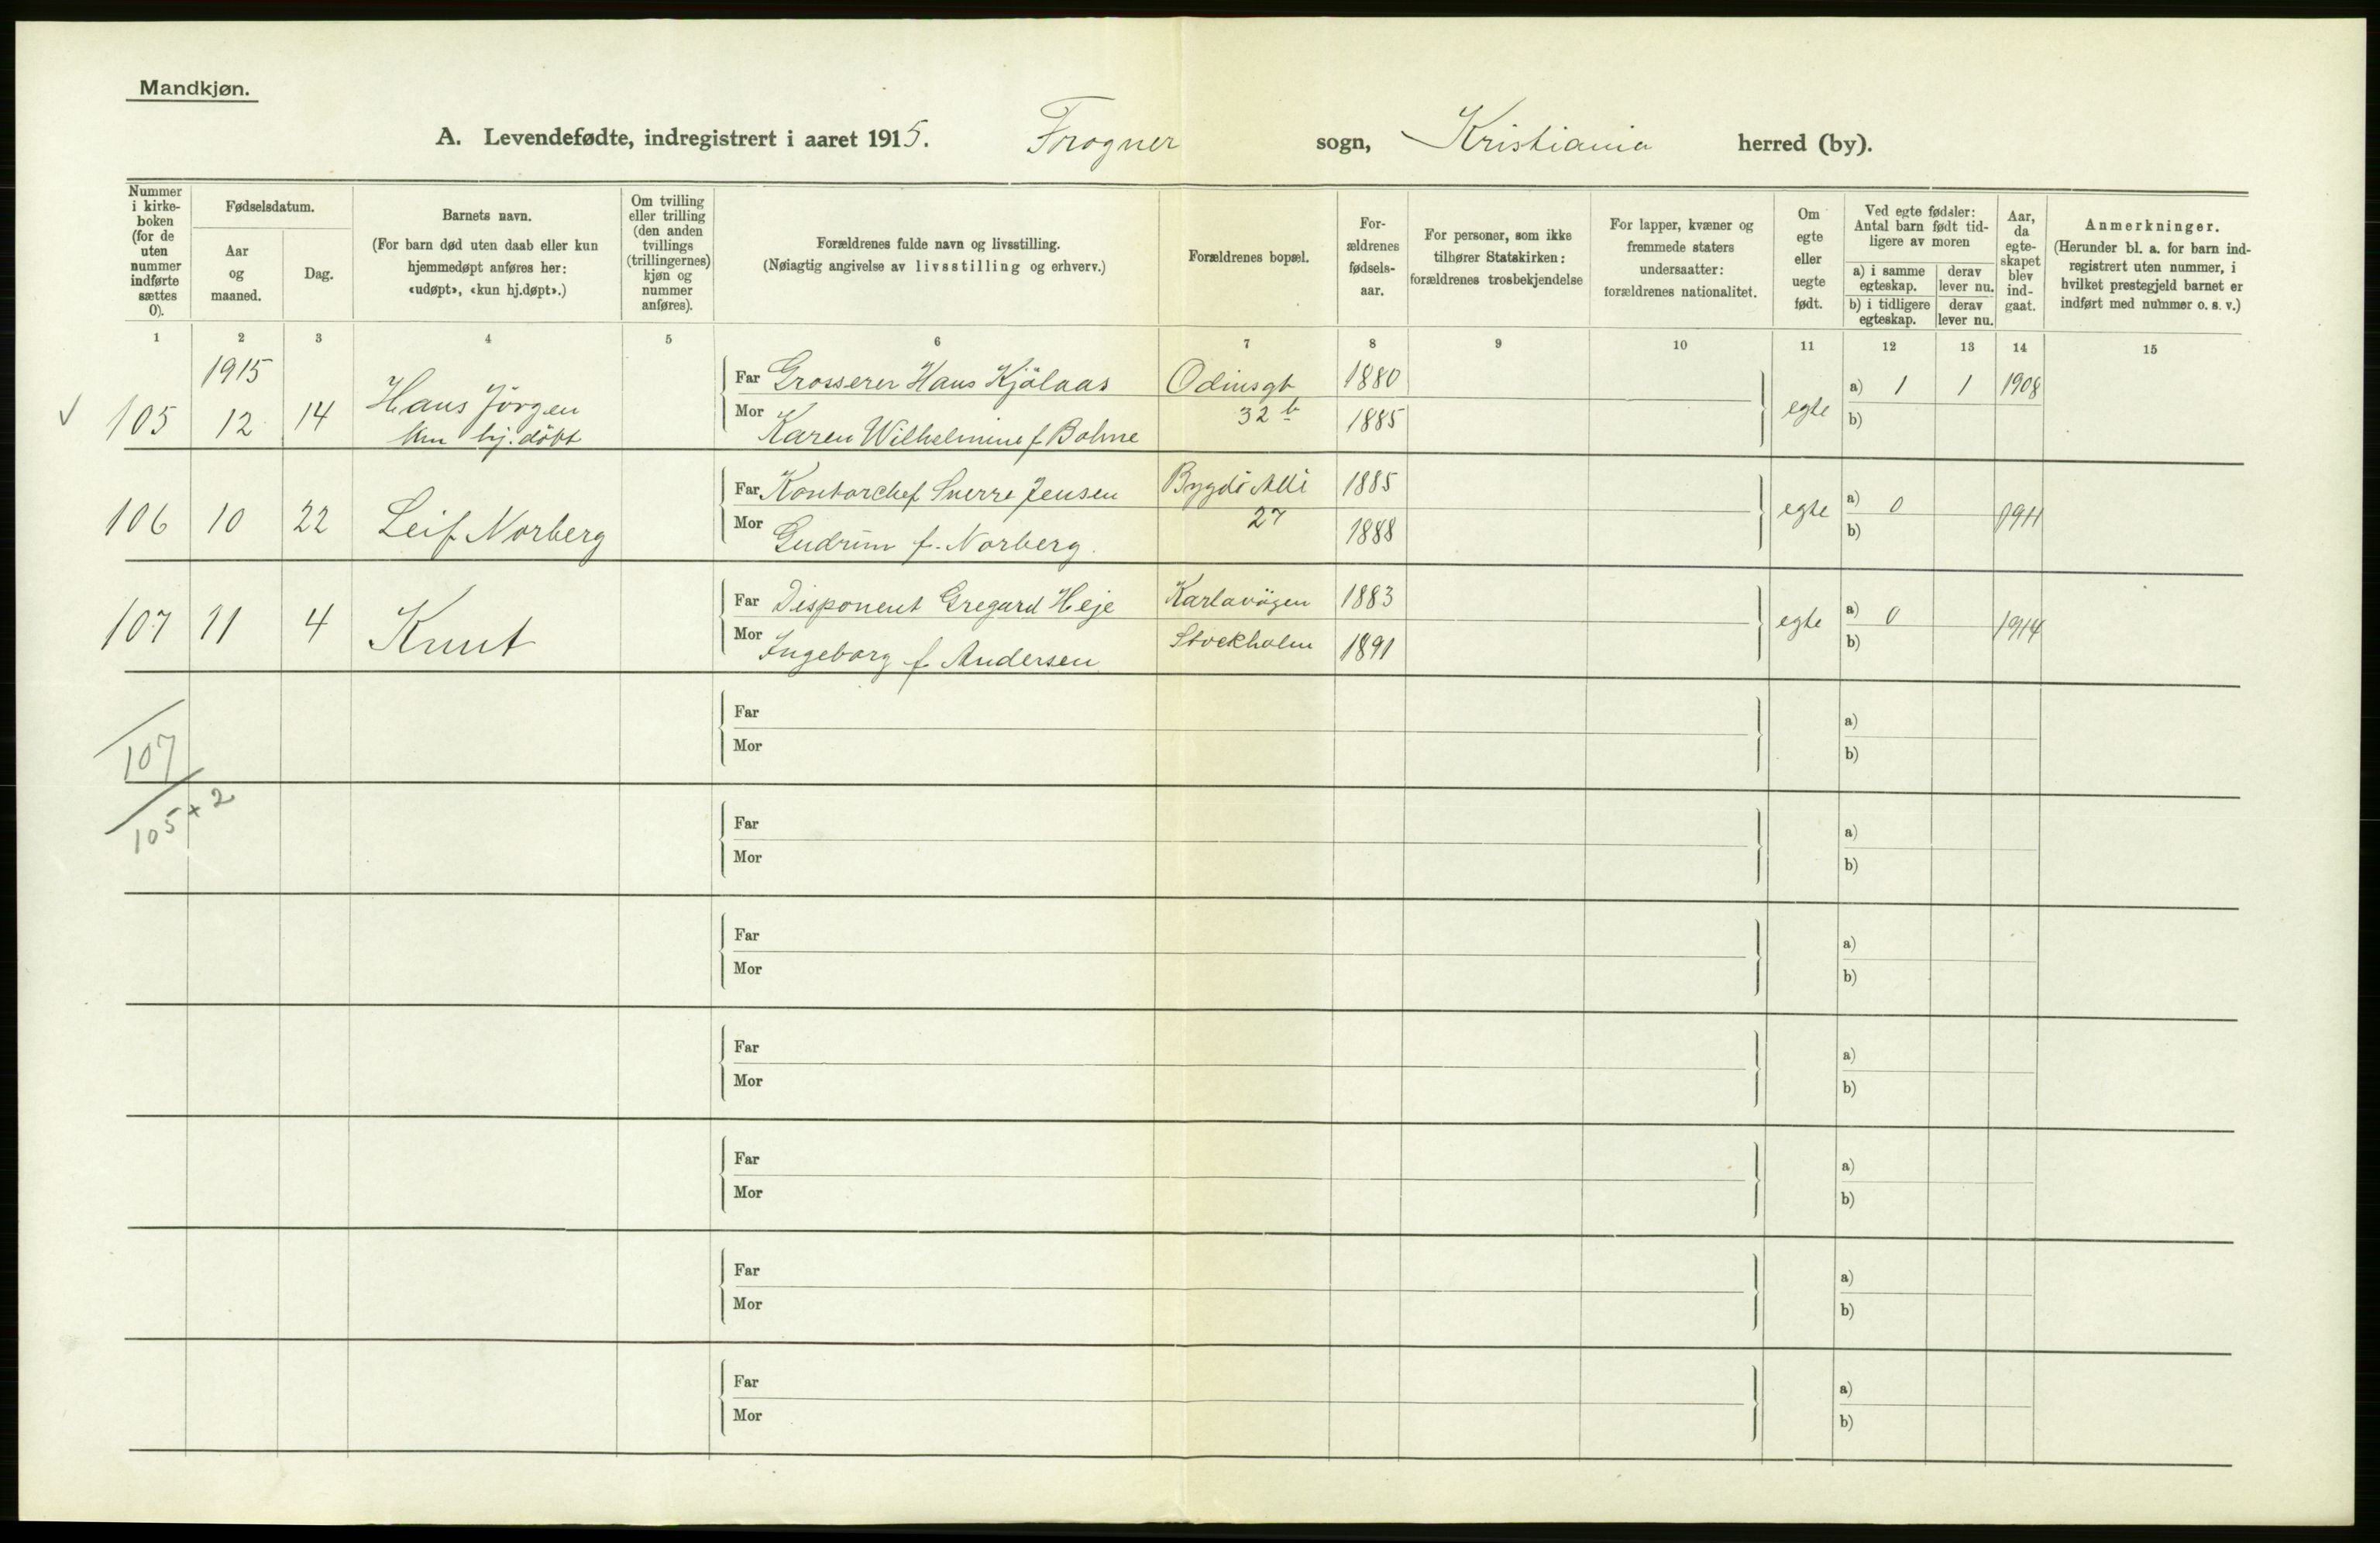 Mandkjøn.
A. Levendefødte, indregistrert i aaret 1915. Frogner sogn, Kristiania herred (by).
Nummer i kirke-boken (for de uten nummer indførte sættes 0).
Fødselsdatum.
Aar og maaned.
Dag.
Barnets navn.
(For barn død uten daab eller kun hjemmedøpt anføres her: «udøpt», «kun hj.døpt».)
Om tvilling eller trilling (den anden tvillings (trillingernes) kjøn og nummer anføres).
Forældrenes fulde navn og livsstilling.
(Nøiagtig angivelse av livsstilling og erhverv.)
Forældrenes bopæl.
For-ældrenes fødsels-aar.
For personer, som ikke tilhører Statskirken: forældrenes trosbekjendelse
For lapper, kvæner og fremmede staters undersaatter: forældrenes nationalitet.
Om egte eller uegte født.
Ved egte fødsler: Antal barn født tid-ligere av moren
a) i samme egteskap.
derav lever nu.
b) i tidligere egteskap.
derav lever nu.
Aar, da egte-skapet blev ind-gaat.
Anmerkninger.
(Herunder bl. a. for barn ind-registrert uten nummer, i hvilket prestegjeld barnet er indført med nummer o. s. v.)
1 2 3 4 5 6 7 8 9 10 11 12 13 14 15
1915
Hans Jörgen Far Grosserer Hans Kjölaas Odinsgt 1880 a) 1 1 1908
105 12 14 kun hj. döbt Mor Karen Wilhelmine f. Bohne 32 b 1885 egte b)
Far Kontorchef Sverre Jensen Bygdö Allé 1885 a) 0
106 10 22 Leif Norberg Mor Gudrun f. Norberg. 27 1888 egte b) 1911
Far Disponent Gregard Heje Karlavägen 1883 a) 0
107 11 4 Knut Mor Ingeborg f. Andersen Stockholm 1891 egte b) 1914
107
Far a)
Mor b)
105 + 2
Far a)
Mor b)
Far a)
Mor b)
Far a)
Mor b)
Far a)
Mor b)
Far a)
Mor b)
Far a)
Mor b)